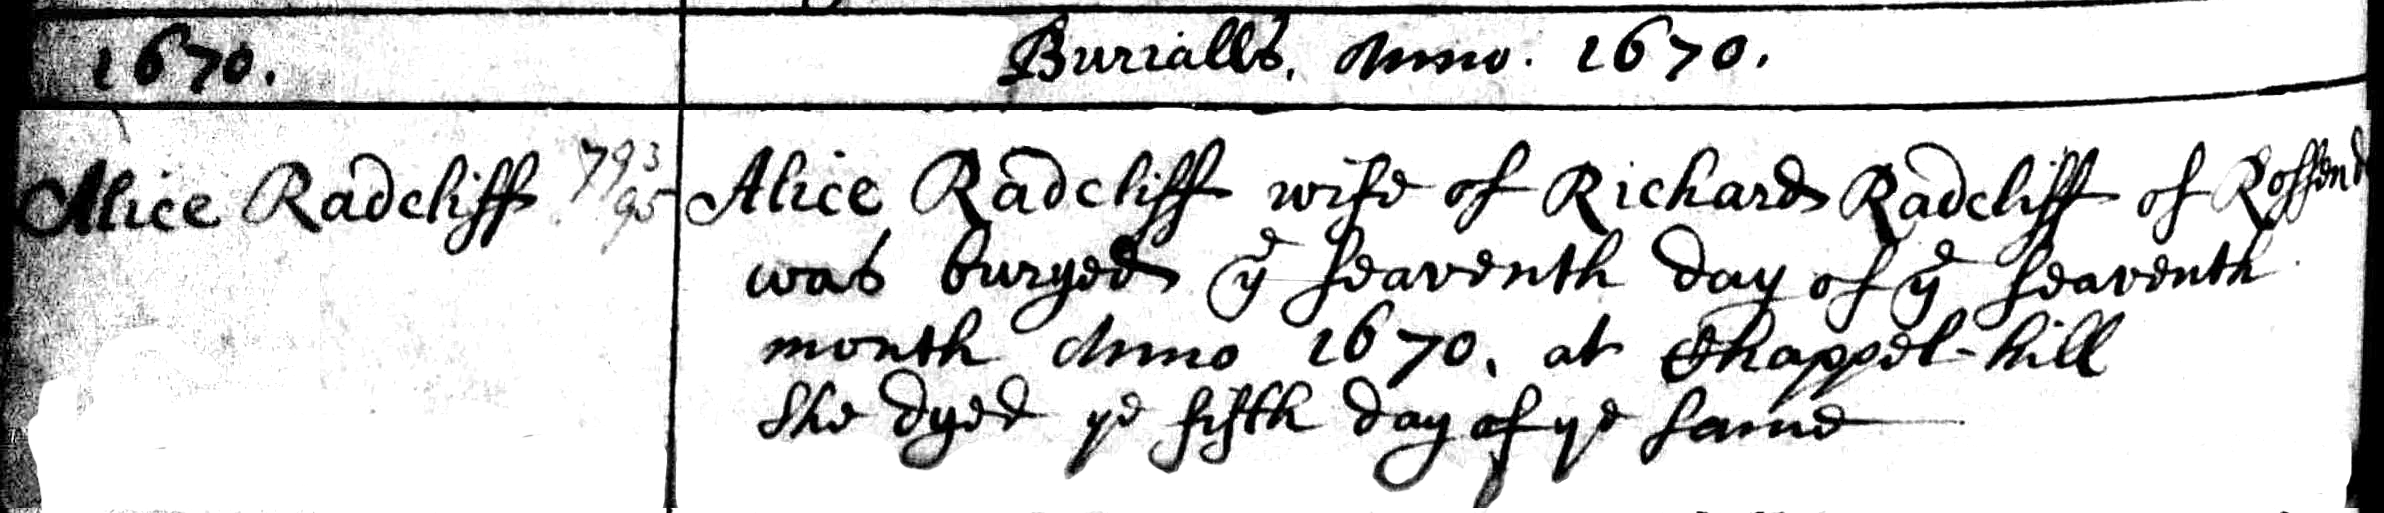 1670.
Burialls. Anno. 1670.
Alice Radcliff 793
95
Alice Radcliff wife of Richard Radcliff of Rossend
was buryed ye seaventh day of ye seaventh
month Anno 1670. at Chappel-hill
She dyed ye fifth day of ye same